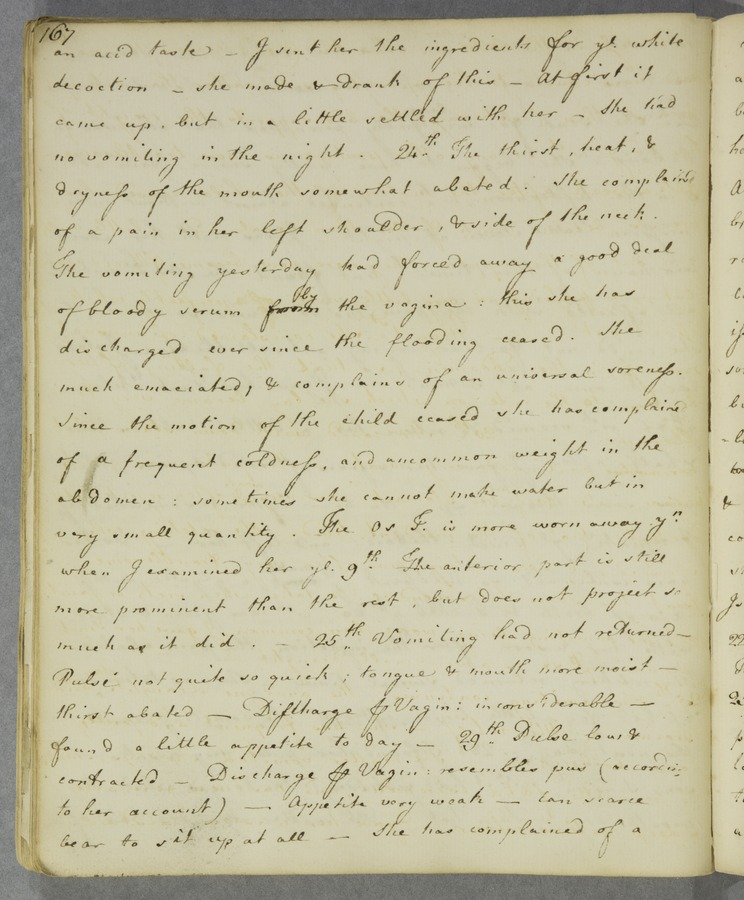 167
an acid taste – I sent her the ingredients for ye. white
decoction – she made & drank of this – At first it
came up, but in a little settled with her – She had
no vomiting in the night. 24.th The thirst, heat, &
dryness of the mouth somewhat abated. She complains
of a pain in her left shoulder, & side of the neck.
The vomiting yesterday had forced away a good deal
of bloody serum from by the vagina: this she has
discharged ever since the flooding ceased. She
much emaciated, & complains of an universal soreness.
Since the motion of the child ceased she has complained
of a frequent coldness, and uncommon weight in the
abdomen: sometimes she cannot make water but in
very small quantity. The Os T. is more worn away yn.
when I examined her ye. 9th. The anterior part is still
more prominent than the rest, but does not project so
much as it did. – 25th. Vomiting had not returned –
Pulse not quite so quick; tongue & mouth more moist –
thirst abated – Discharge p Vagin: inconsiderable –
found a little appetite to day – 29th. Pulse low &
contracted – Discharge p Vagin: resembles pus (accordin:
to her account) – Appetite very weak – can scarce
bear to sit up at all – She has complained of a